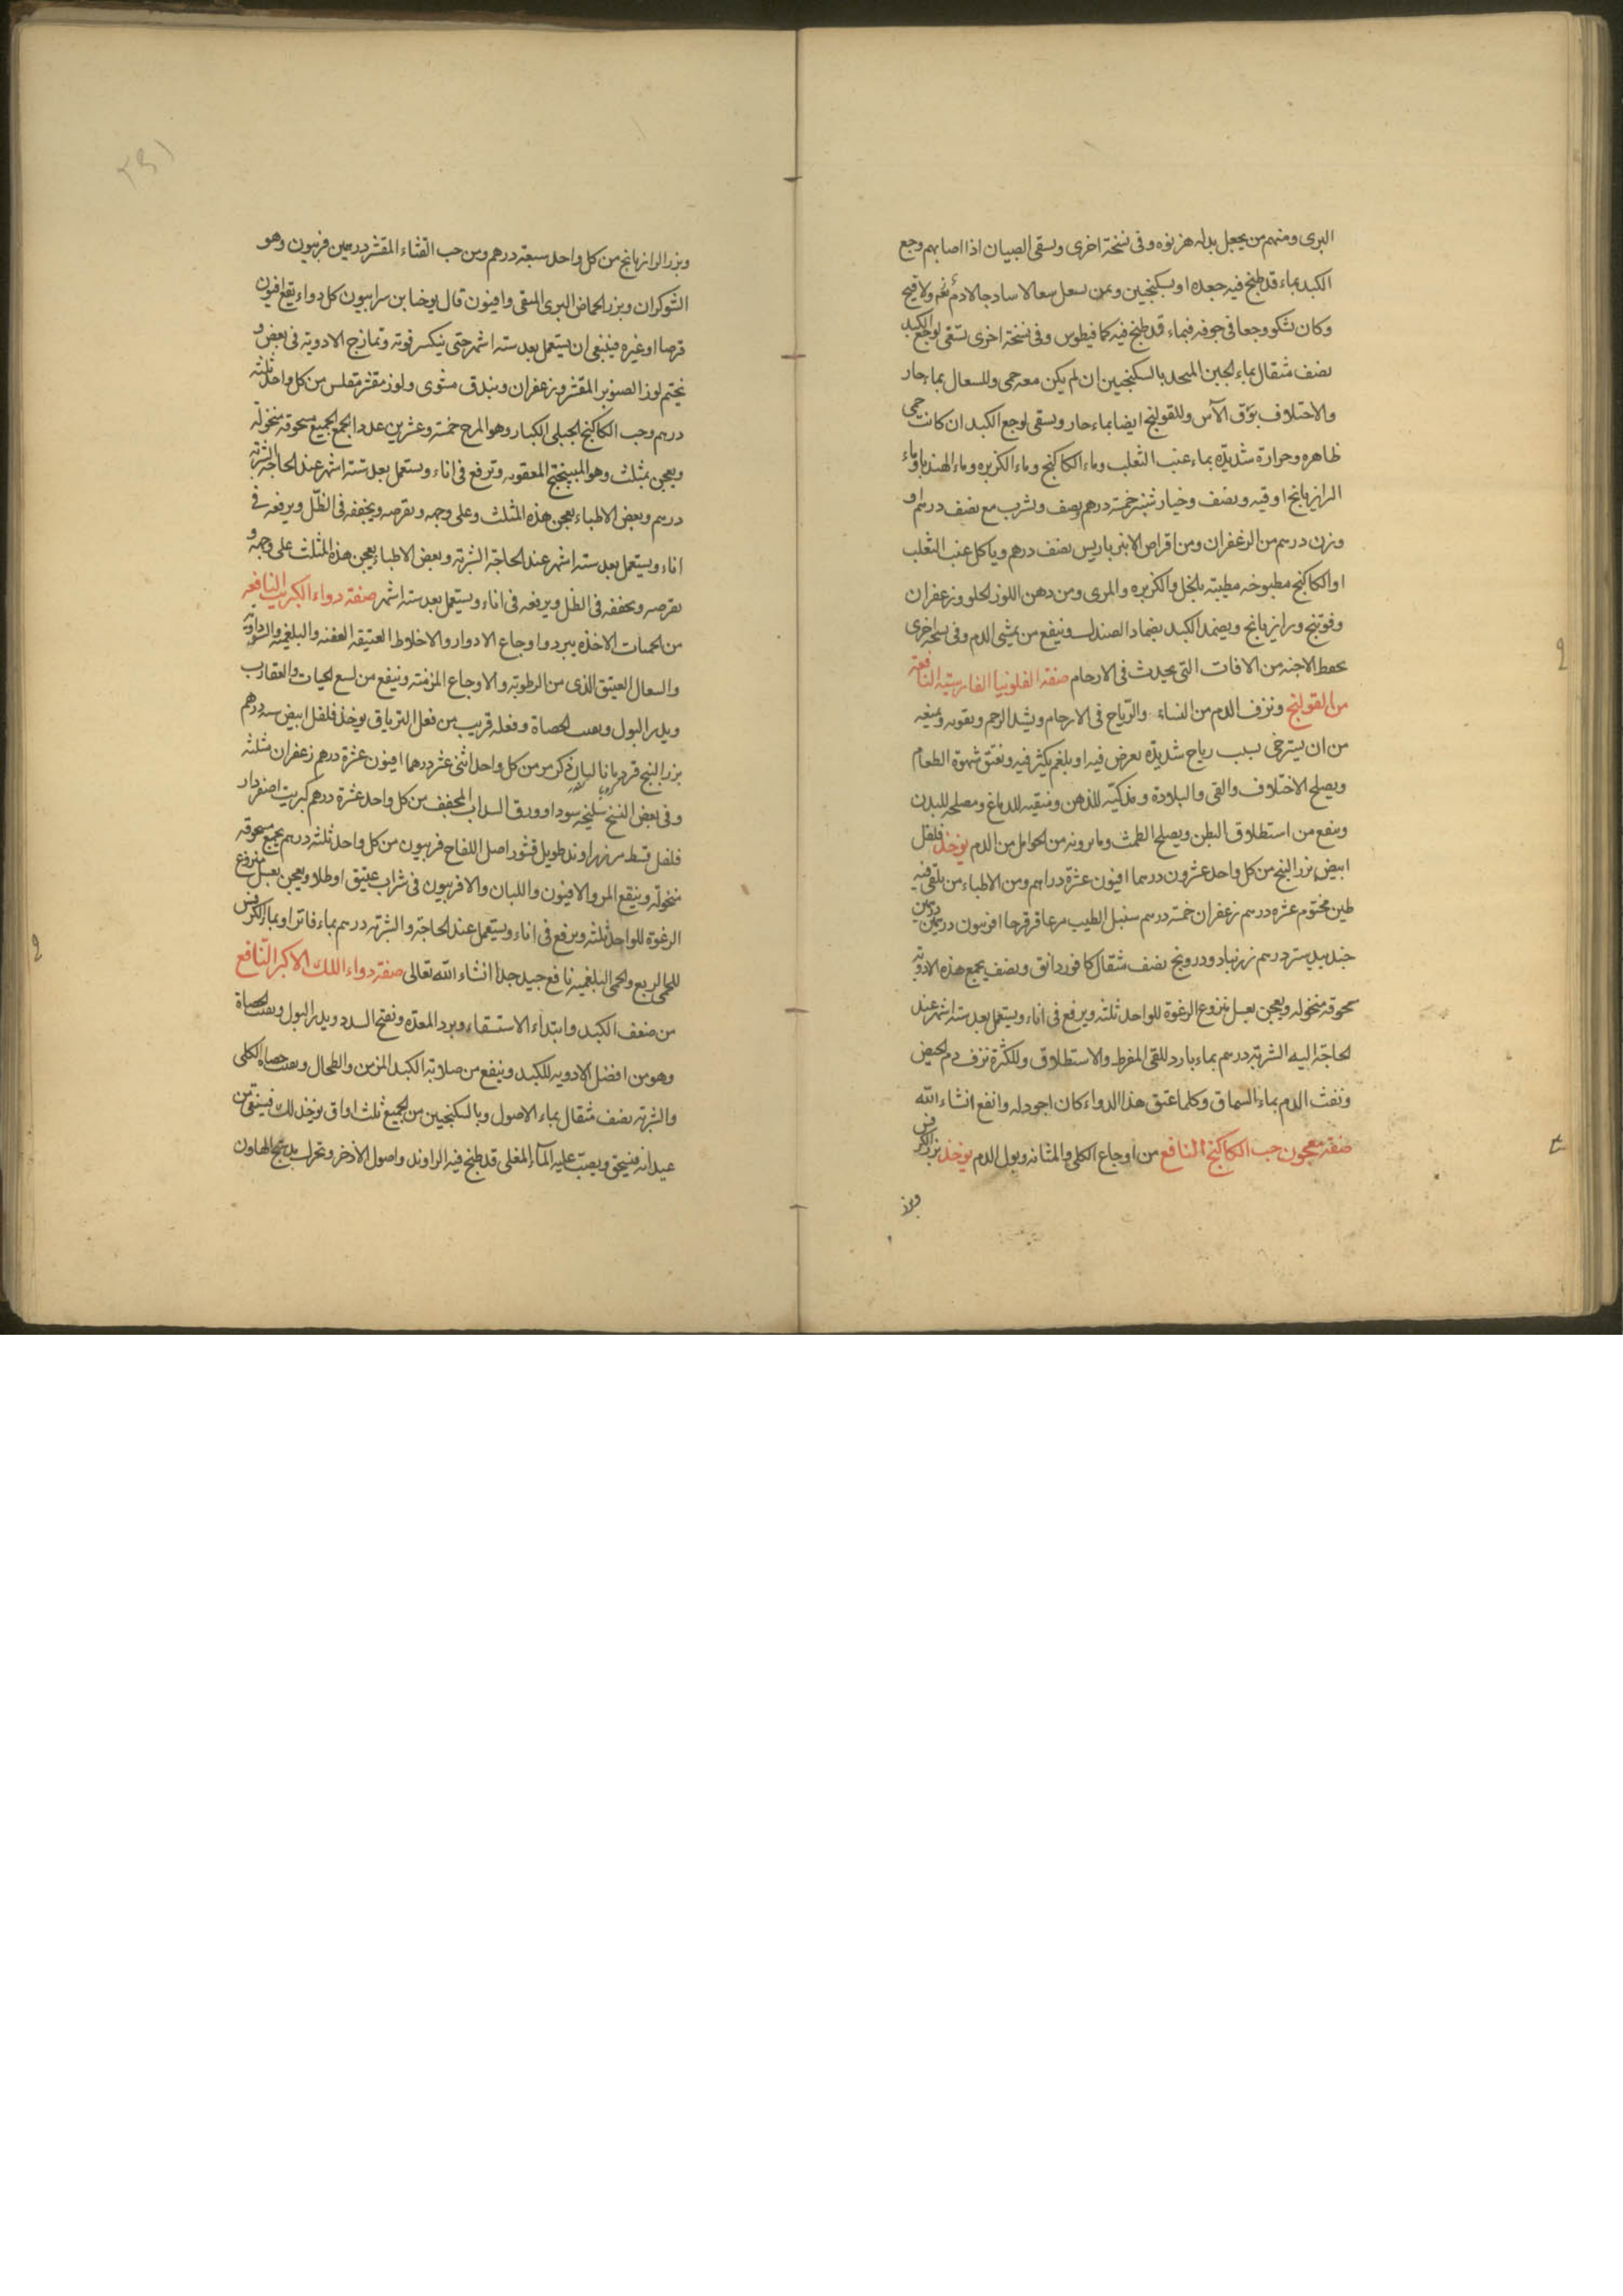 البرى ومنهم من يجعل بدله هزنوه وفى نسخة اخرى ويسقى الصبيان اذا اصابهم وجع
الكبد بماء قد طبخ فيه جعده او بسكنجبين ومن يسعل سعالا ساذجا لا دم نعم ولا قيح
وكان يشكو وجعا فى جوفه فبماء قد طبخ فيه كمافيطوس وفى نسخة اخرى تسقى لوجع الكبد
نصف مثقال بماء الجبن المتخد بالسكنجبين ان لم يكن معه حمى وللسعال بماء حار
والاختلاف بورق الآس وللقولنج ايضا بماء حار ويسقى لوجع الكبد ان كانت حمى
ظاهره وحرارة شديدة بماء عنب الثعلب وماء الكاكنج وماء الكزبره وماء الهندباء وماء
الرازيانج اوقيه ونصف وخيارشنبر خمسة درهم ونصف ويشرب مع نصف درهم او
وزن درهم من الزعفران ومن اقراص الانبرباريس نصف درهم وياكل عنب الثعلب
او الكاكنج مطبوخه مطيبة بالخل والكزبره والمرى ومن دهن اللوز الحلو وزعفران
وفوتنج ورازيانج ويضمد الكبد بضماد الصندلين وينفع من يمشى الدم وفى نسخة اخرى
يحفظ الاجنه من الافات التى يحدث فى الارحام صفة الفلونيا الفارسيه النافعة
من القولنج ونزف الدم من النساء والرياح فى الارحام ويشد الرحم ويقويه ويمنعه
من ان يسترخى بسبب رياح شديدة يعرض فيه او بلغم يكثر فيه ويفتق شهوة الطعام
ويصلح الاختلاف والقى والبلادة ويذكيه للذهن ومنقيه للدماغ ومصلحه للبدن
وينفع من استطلاق البطن ويصلح الطمث وما يرونه من الحوامل من الدم يوخذ فلفل
ابيض بزر البنج من كل واحد عشرون درهما افيون عشرة دراهم ومن الاطباء من يلقى فيه
طين مختوم عشره درهم زعفران خمسة درهم سنبل الطيب مر عاقرقرحا افربيون درهمين درهمين
جندبيدستر درهم زرنباد ودرونج نصف مثقال كافور دانق ونصف يجمع هذه الادوية
مسحوقه منخوله ويعجن بعسل منزوع الرغوة للواحد ثلثه ويرفع فى اناء ويستعمل بعد ستة اشهر عند
الحاجة اليه الشربة درهم بماء بارد للقى المفرط والاستطلاق وللكثرة نزف دم الحيض
ونفث الدم بماء السماق وكلما عتق هذا الدواء كان اجود له وانفع انشاء الله
صفة معجون حب الكاكنج النافع من اوجاع الكلى والمثانه وبول الدم يوخذ بزر الكرفس
وبزر
وبزر الرازيانج من كل واحد سبعة درهم ومن حب القثاء المقشر درهمين فربيون وهو
الشوكران وبزر الحماض البرى المنقى وافيون قال يوحنا بن سرابيون كل دواء يقع افيون
قرصا او غيره فينبغى ان يستعمل بعد ستة اشهر حتى ينكسر قوته وتمازج الادوية فى بعض و
يختم لوز الصنوبر المقشر وزعفران وبندق مشوى ولوز مقشر من كل واحد ثلثه
درهم وحب الكاكنج الجبلى الكبار وهو المرح خمسة وعشرين عددا يجمع الجميع مسحوقة منخولة
ويعجن بمثلث وهو الميبختج المعقود ويرفع فى اناء ويستعمل بعد ستة اشهر عند الحاجة الشربة
درهم وبعض الاطباء يعجن هذه المثلث وعلى وجهه ويقرصه ويجففه فى الظل ويرفعه فى
اناء ويستعمل بعد ستة اشهر عند الحاجة الشربة وبعض الاطباء يعجن هذه المثلث على وجهه و
يقرصه ويجففه فى الظل ويرفعه فى اناء ويستعمل بعد ستة اشهر صفة دواء الكبريت النافعه
من الحميات الاخذه ببرد واوجاع الادوار والاخلاط العتيقه العفنه والبلغمية والسوداوية
والسعال العتيق الذى من الرطوبة والاوجاع المزمنه وينفع من لسع الحيات والعقارب
ويدر البول ويفتت الحصاة وفعله قريب من فعل الترياق يوخذ فلفل ابيض ستة درهم
بزر البنج قردمانا لبان ذكر مر من كل واحد اثنى عشر درهما افيون عشرة درهم زعفران مثلثه
وفى بعض النسخ سليخه سودا وورق السداب المجفف من كل واحد عشرة درهم كبريت اصفر دار
فلفل قسط مر زراوند طويل قشور اصل اللفاح فربيون من كل واحد ثلثه درهم يجمع مسحوقه
منخولة وينقع المر والافيون واللبان والافربيون فى شراب عتيق او طلاء ويعجن بعسل منزوع
الرغوة للواحد ثلثه ويرفع فى اناء ويستعمل عند الحاجة والشربة درهم بماء فاتر او بماء الكرفس
للحمى الربع والحمى البلغميه نافع جيد جدا انشاء الله تعالى صفة دواء اللك الاكبر النافع
من ضعف الكبد وابتداء الاستسقاء وبرد المعدة ويفتح السدد ويدر البول ويفتت الحصاة
وهو من افضل الادويه للكبد وينفع من صلابة الكبد المزمن والطحال ويفتت حصاه الكلى
والشربة نصف مثقال بماء الاصول وبالسكنجبين من الجميع ثلث اواق يوخذ لك فينقى من
عيدانه فيسحق ويصب عليه الماء المغلى قد طبخ فيه الراوند واصول الاذخر وتحرك بدستج الهاون